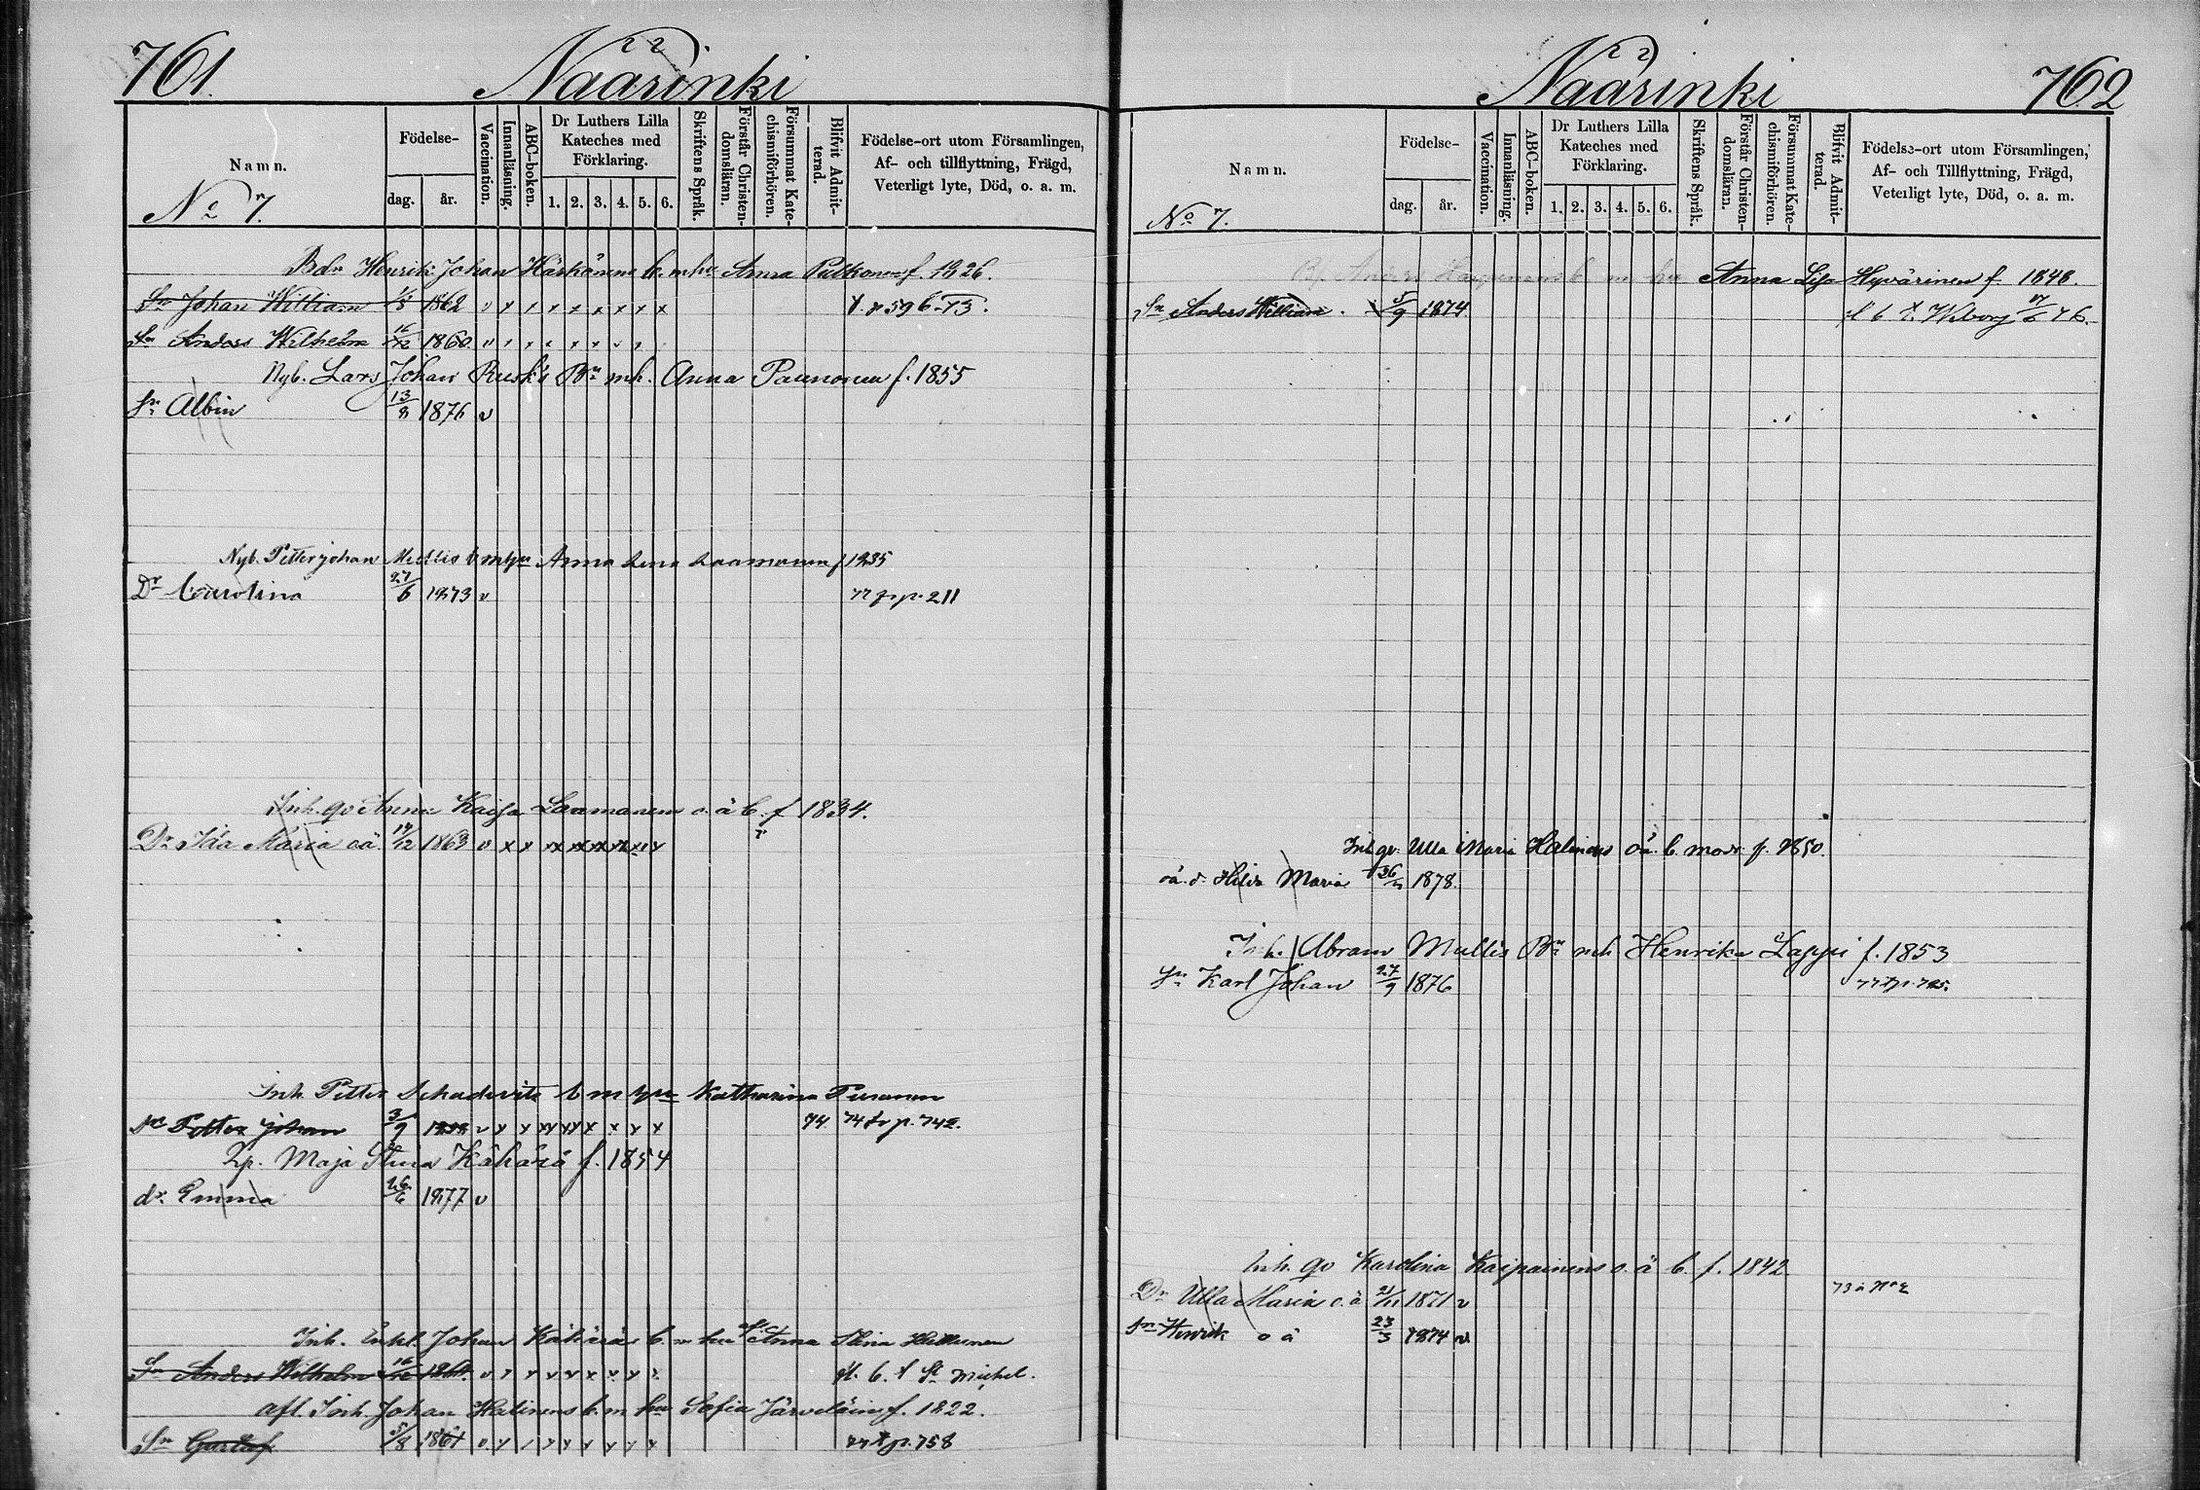 761.
Naarinki
Namn.
Födelse-
dag.
år.
Vaccination.
Innanläsning.
ABC-boken.
Dr Luthers Lilla Kateches med Förklaring.
1. 2. 3. 4. 5. 6.
Skriftens Språk.
Förstår Christen-domsläran.
Försummat Kate-chismiförhören.
Blifvit Admit-terad.
Födelse-ort utom Församlingen,
Af- och tillflyttning, Frägd,
Veterligt lyte, Död, o. a. m.
No 7.
Henrik Johan Härkönens b. m hu Anna Pulkonen f. 1826.
Sn Johan William 1862 v x x x x x x x x p 596 73.
Sn Anders Wilhelm 16/12 1860 v
Nyb. Lars Johan Rusk's Bn mh. Anna Paunonen f. 1855
Sn Albin 13/8 1876 v
Nyb. Petter Johan Mullis b m hu Anna Lena Laamanen f 1835
Dr Carolina 27/6 1873 v 77 p. 211
Inh. qv Anna Kaisa Laamanens o. ä b. f 1834.
Dr Ida Maria oä 1863 v x x xx xx xx xx
Inh. Petter Schadevits b m hu Katharina Pusanen
Sn Petter Johan 3/9 v x x xx xx x x x x 74 74 tr p. 742.
Maja Stina Kähärä f. 1854
dr. Emma 26/6 1877 v
Inh. Johan Kähäräs b. m hu Anna Stina Hattunen
Sn Anders Wilhelm 16/12 1860 v fl. b. t St Michel.
afl. Inh. Johan Halinens b. m hu Sofia Järveläinen f. 1822.
Sn Gustaf 5/8 1861 v 77 tr p. 758
762
Naarinki
Namn.
Födelse-
dag.
år.
Vaccination.
Innanläsning.
ABC-boken.
Dr Luthers Lilla Kateches med Förklaring.
1. 2. 3. 4. 5. 6.
Skriftens Språk.
Förstår Christen-domsläran.
Försummat Kate-chismiförhören.
Blifvit Admit-terad.
Födelse-ort utom Församlingen,
Af- och Tillflyttning, Frägd,
Veterligt lyte, Död, o. a. m.
No 7.
Anders b. m hu Anna Lisa Hyvärinen f. 1848.
Sn Anders William. 5/9 1874 fl b t. Wiborg 17/6 76.
Inh. qv. Ulla Maria Halinens oä. b. modr. f. 1850.
oä. d. Hilda Maria 26/11 1878.
Inh. Abram Mullis Bn mh Henrika Lappi f. 1853
Sn Karl Johan 27/9 1876 77 tr p. 725.
Inh. qv Karolina Kaipainens o. ä b. f. 1842
Dr Ulla Maria o. ä 2/11 1871 v
Sn Henrik o ä 23/3 1874 v